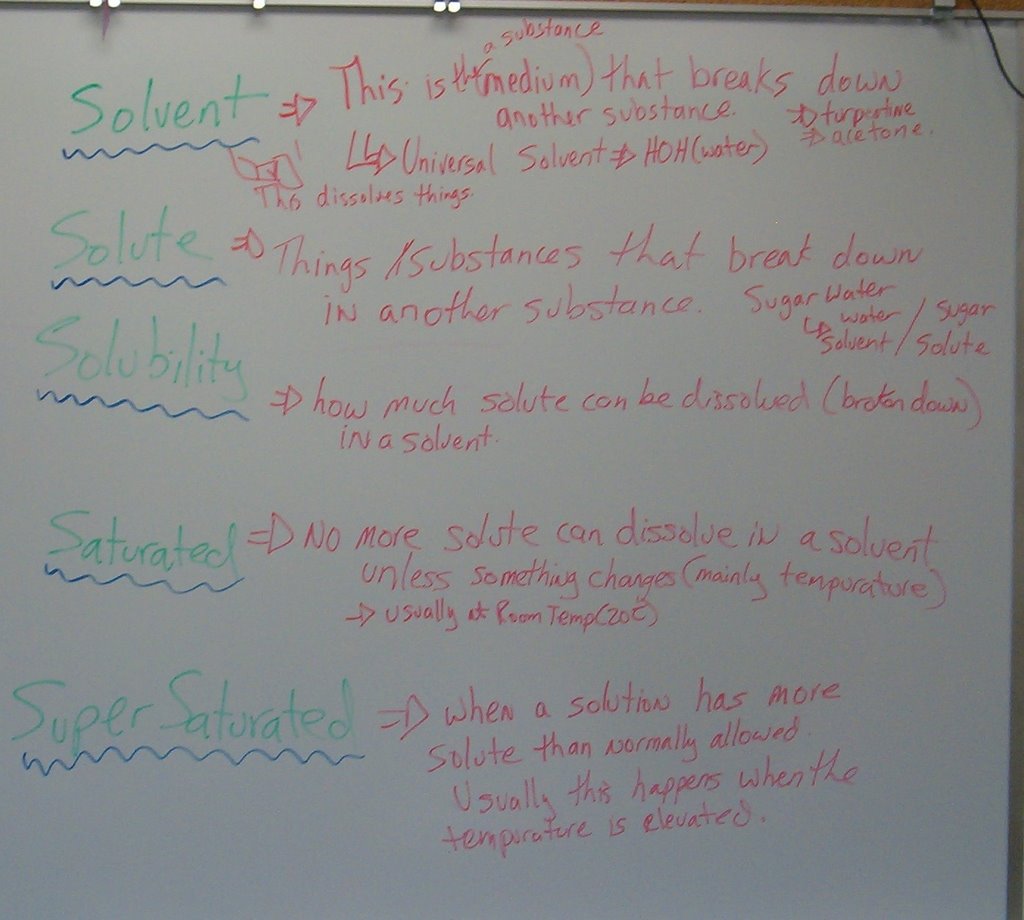 a substance
Solvent ⇒ This is the (medium) that breaks down
another substance. ⇒ turpentine
⇒ acetone.
↳ Universal Solvent ⇒ HOH (water)
This dissolves things.
Solute ⇒ Things / Substances that break down
in another substance. Sugar Water
↳ water / Sugar
Solvent / Solute
Solubility
⇒ how much solute can be dissolved (broken down)
in a solvent.
Saturated ⇒ No more solute can dissolve in a solvent
unless something changes (mainly tempurature)
→ Usually at Room Temp (20C)
Super Saturated ⇒ When a solution has more
solute than normally allowed.
Usually this happens when the
tempurature is elevated.